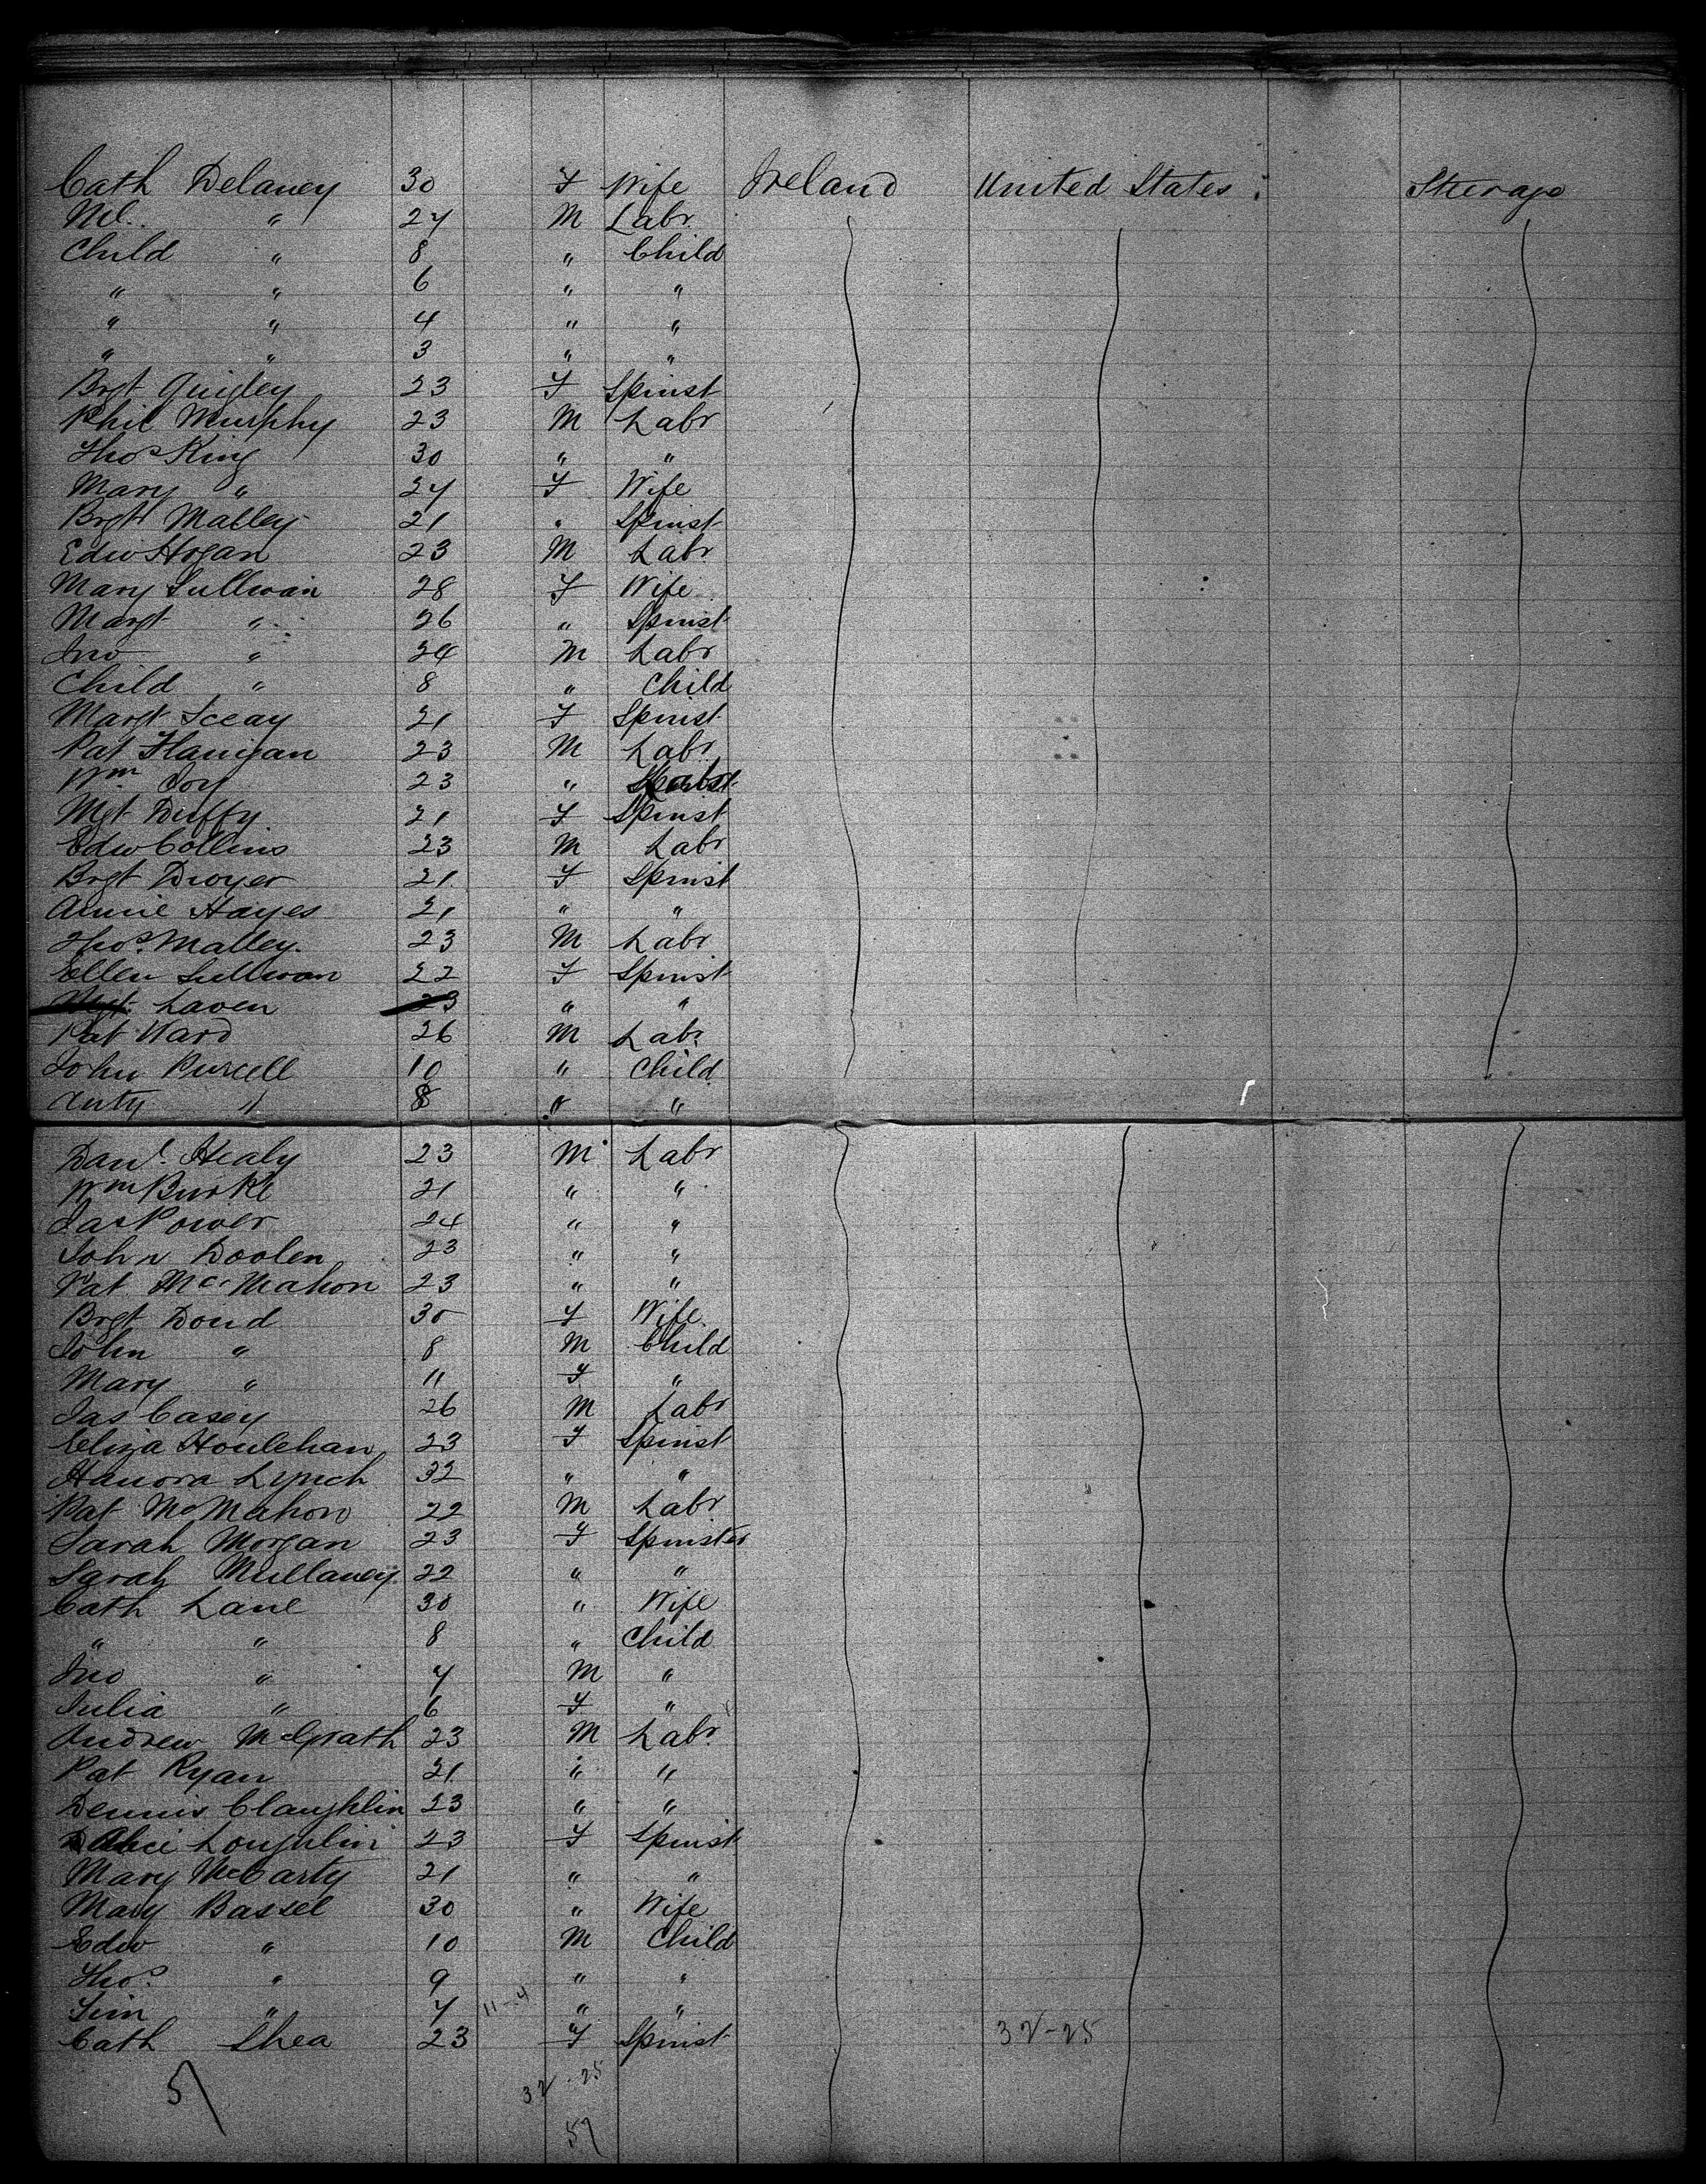 Cath Delaney 30 F Wife Ireland United States Steerage
" 27 M Labr
Child " 8 " Child
" " 6 " "
" " 4 " "
" " 3 " "
Brgt Quigley 23 F Spinst
Phil Murphy 23 M Labr
Thos King 30 " "
Mary " 27 F Wife
Brgt Malley 21 " Spinst
Edw Hogan 23 M Labr
Mary Sullivan 28 F Wife
Margt " 26 " Spinst
Jno " 24 M Labr
Child " 8 " Child
Margt 21 F Spinst
Pat Flanigan 23 M Labr
Wm 23 "
Mgt Duffy 21 F Spinst
Edw Collins 23 M Labr
Brgt Dwyer 21 F Spinst
Annie Hayes 21 " "
Thos. Malley 23 M Labr
Ellen Sullivan 22 F Spinst
Laven 23 " "
Pat Ward 26 M Labr
John Purcell 10 " Child
Anty " 8 " "
Danl. Healy 23 M Labr
Wm Burke 21 " "
Jas Power 24 " "
John Doolen 23 " "
Pat McMahon 23 " "
Brgt Doud 30 F Wife
John " 8 M Child
Mary " 11 F "
Jas Casey 26 M Labr
Eliza Houlehan 23 F Spinst
Hanora Lynch 32 " "
Pat McMahon 22 M Labr
Sarah Morgan 23 F Spinster
Sarah Mullaney 22 " "
Cath Lane 30 " Wife
" " 8 " Child
Jno " 7 M "
Julia " 6 F "
Andrew McGrath 23 M Labr
Pat Ryan 21 " "
Dennis Claughlin 23 " "
Alice Loughlin 23 F Spinst
Mary McCarty 21 " "
Mary Bassel 30 " Wife
Edw " 10 M Child
Thos. " 9 " "
" 7 11-4 " "
Cath Shea 23 F Spinst 32-25
57 32-25
57